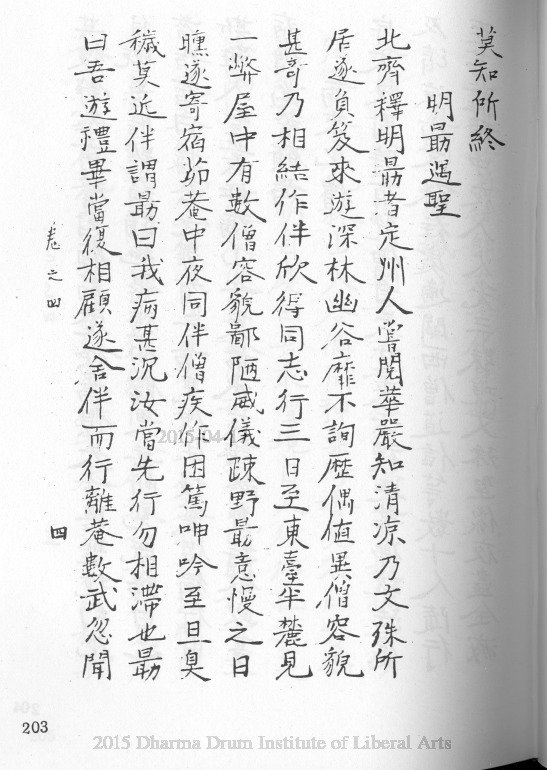 莫知所終
明勗遇聖
北齊釋明勗者定州人嘗閱華嚴知清凉乃文殊所
居遂負笈來遊深林幽谷靡不詢歷偶值異僧容貌
甚奇乃相結作伴欣得同志行三日至東臺半麓見
一弊屋中有數僧容貌鄙陋威儀疎野勗意慢之日
曛遂寄宿茆菴中夜同伴僧疾作困篤呻吟至旦臭
穢莫近伴謂勗曰我病甚沉汝當先行勿相滯也勗
曰吾遊禮畢當復相顧遂舍伴而行離菴數武忽聞
卷之四
四
203
2015-04-1
2015 Dharma Drum Institute of Liberal Arts